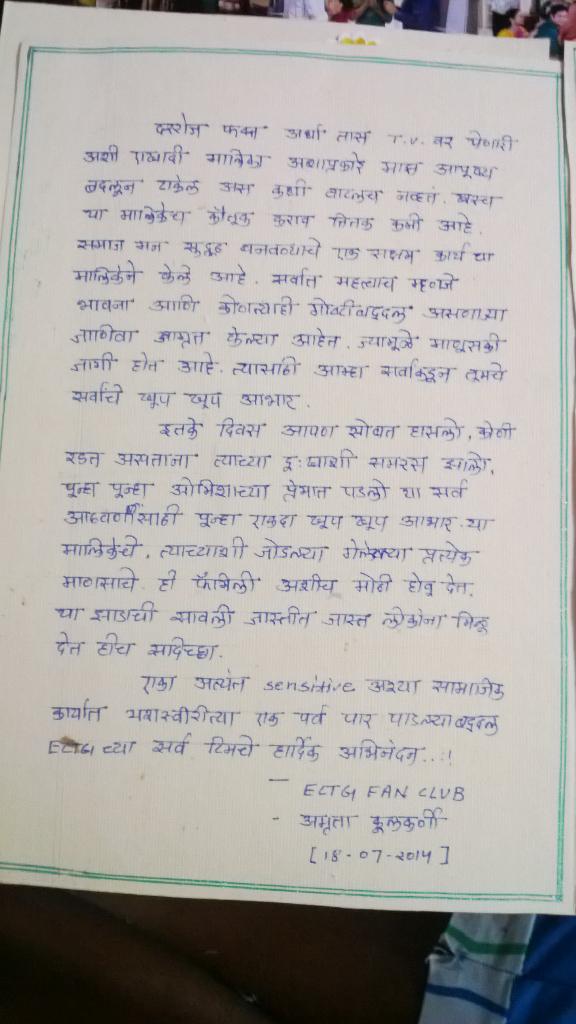 दररोज फक्त अर्धा तास T.V. वर येणारी
अशी एखादी मालिका अशाप्रकारे माझं आयुष्य
बदलून टाकेल असं कधी वाटलंच नव्हतं. खरंच
या मालिकेचं कौतूक करावं तितकं कमी आहे.
समाज मन सुदृढ बनवण्याचे एक सक्षम कार्य या
मालिकेने केले आहे. सर्वात महत्वाचं म्हणजे
भावना आणि कोणत्याही गोष्टीबद्दल असणाऱ्या
जाणिवा जागृत केल्या आहेत. ज्यामूळे माणूसकी
जागी होत आहे. त्यासाठी आम्हा सर्वांकडून तूमचे
सर्वांचे खूप खूप आभार.
इतके दिवस आपण सोबत हासलो, कोणी
रडत असताना त्याच्या दुःखाशी समरस झालो,
पून्हा पून्हा ओमिशाच्या प्रेमात पडलो या सर्व
आठवणींसाठी पून्हा एकदा खूप खूप आभार या
मालिकेचे, त्याच्याशी जोडल्या गेलेल्या प्रत्येक
माणसाचे. ही फॅमिली अशीच मोठी होवू देत.
या झाडाची सावली जास्तीत जास्त लोकांना मिळू
देत हीच सदिच्छा.
एका अत्यंत sensitive अश्या सामाजिक
कार्यात यशस्वीरीत्या एक पर्व पार पाडल्याबद्दल
ECTG च्या सर्व टिमचे हार्दिक अभिनंदन..!!
— ECTG FAN CLUB
- अमृता कूलकर्णी
[18-07-2014]